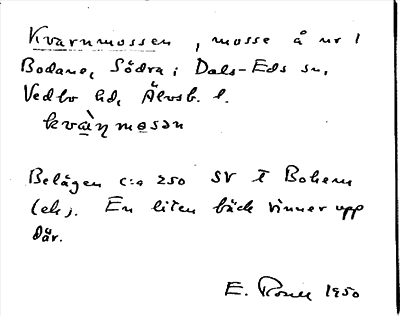 Kvarnmossen, mosse å nr 1
Bodane, Södra; Dals-Eds sn,
Vedbo hd, Älvsb. l.
kvànmosən
Belägen c:a 250 SV t Bohem
(ek). En liten bäck rinner upp
där.
E. 1950